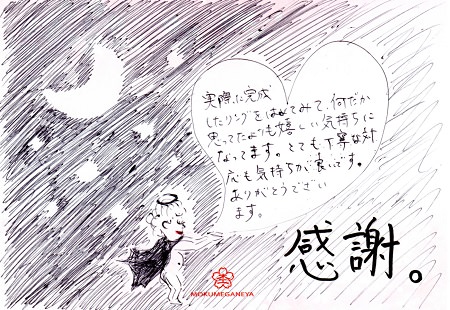 実際に完成
したリングをはめてみて、何だか
思ってたよりも嬉しい気持ちに
なってます。とても丁寧な対
応も気持ちが良いです。
ありがとうござい
ます。
感謝。
MOKUMEGANEYA